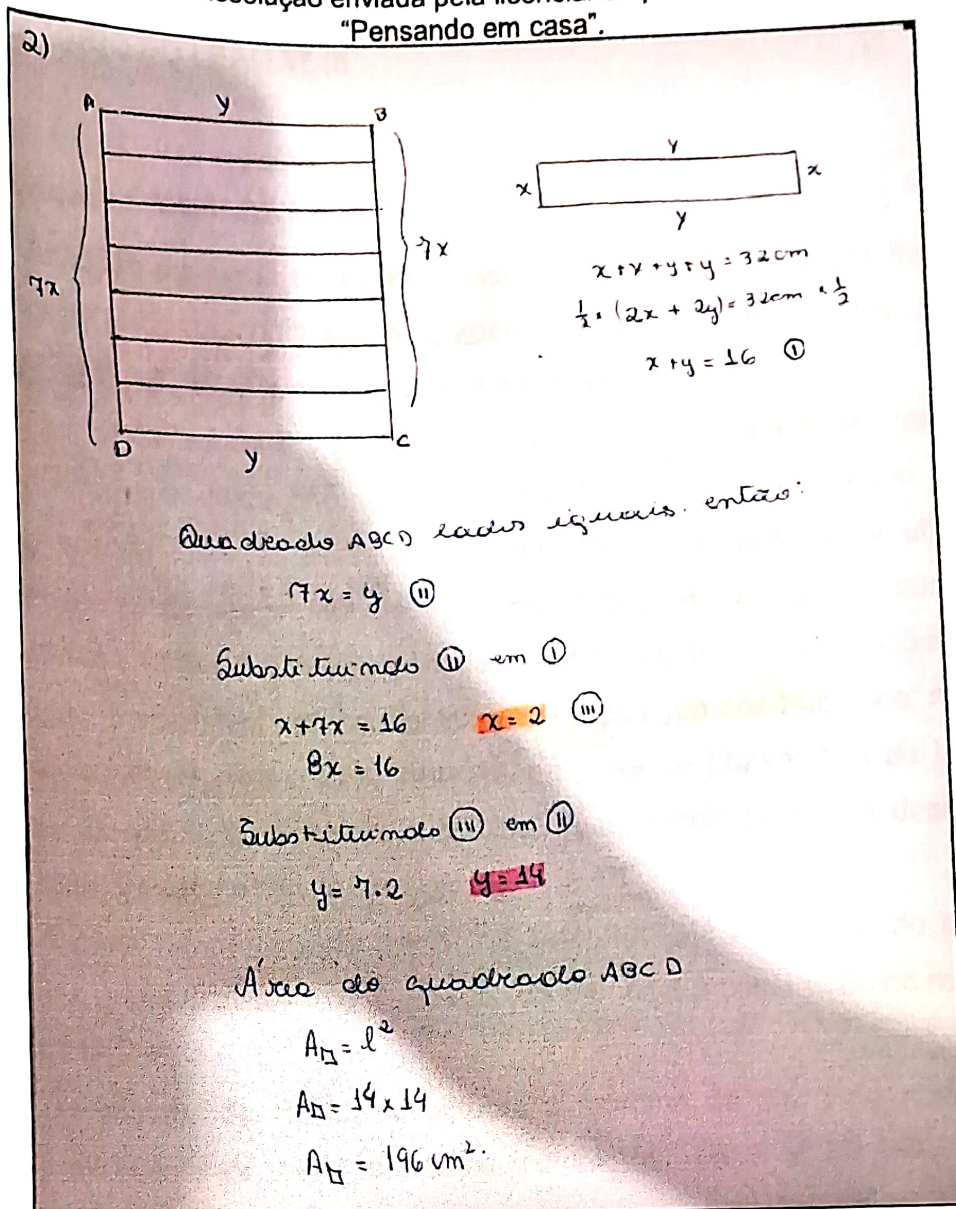 enviada pela
"Pensando em casa".
2)
A y B
7x
7x
D y C
y
x x
y
x+x+y+y=32cm
1/2 · (2x + 2y) = 32cm · 1/2
x+y = 16 (I)
Quadrado ABCD lados iguais. então:
7x = y (II)
Substituindo (II) em (I)
x+7x = 16 x = 2 (III)
8x = 16
Substituindo (III) em (II)
y = 7.2 y = 14
Área do quadrado ABCD
A□ = l²
A□ = 14 x 14
A□ = 196 cm².